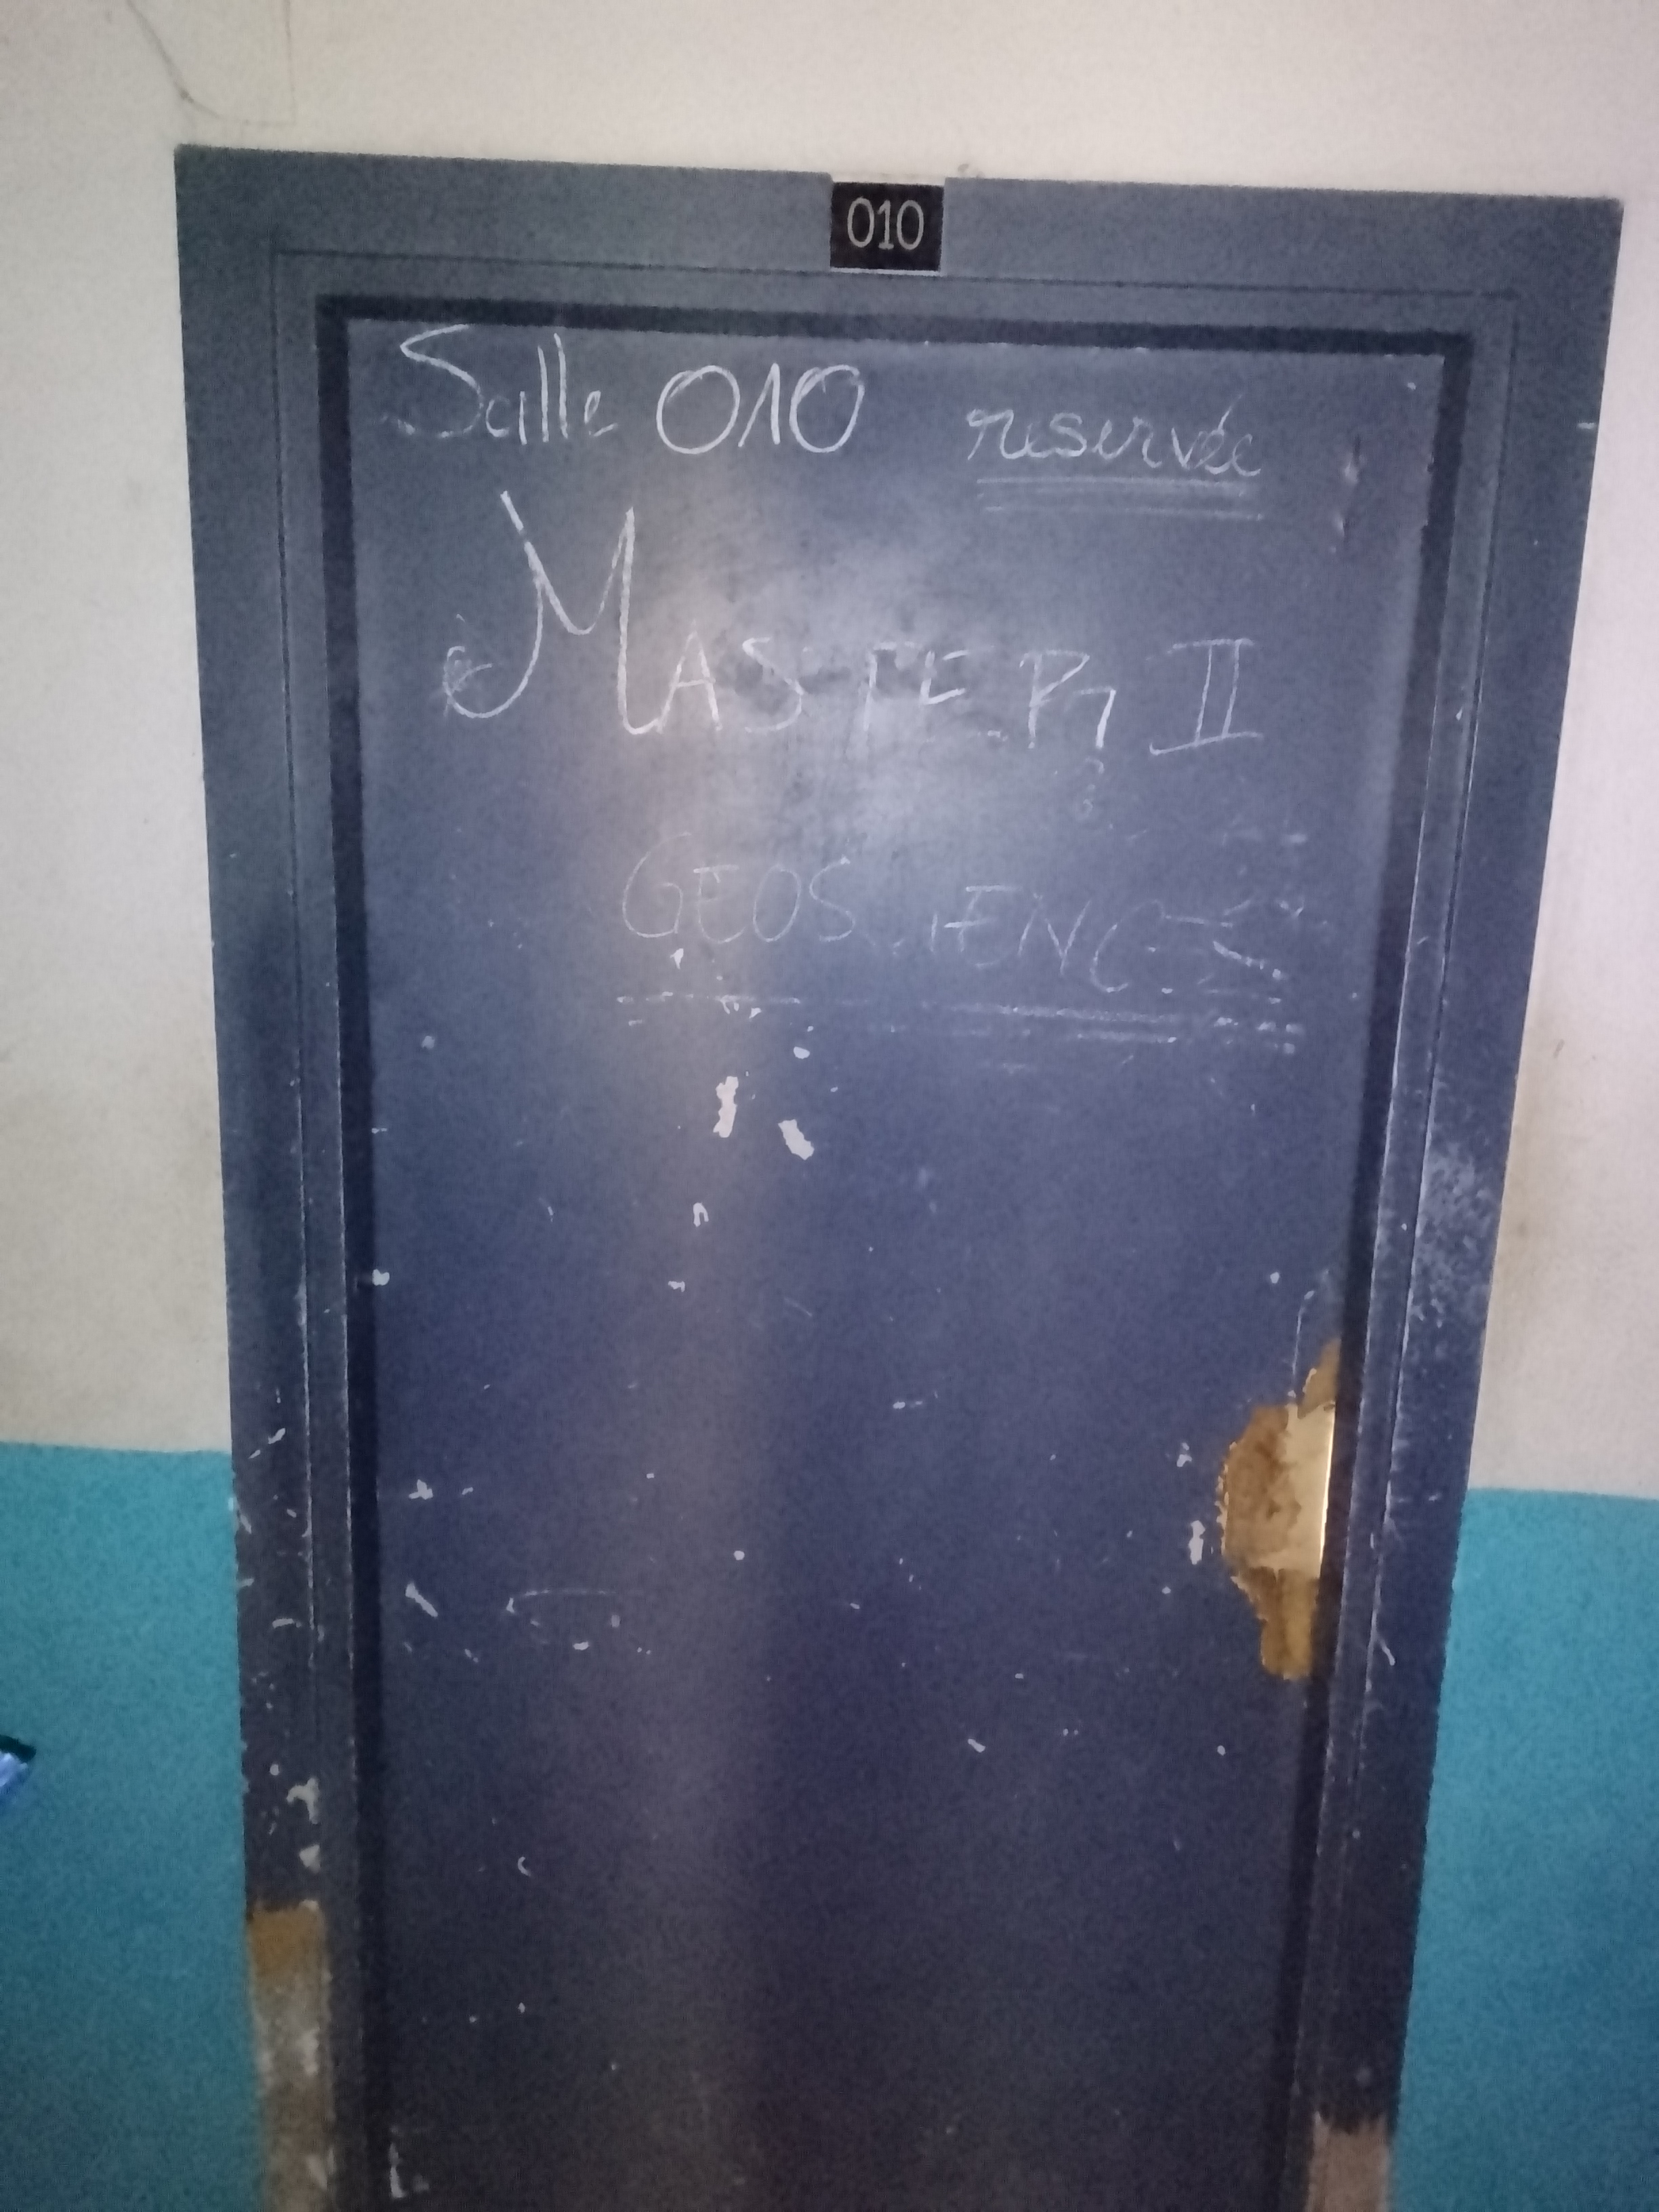 010
Salle 010 reservée
MASTER II
GEOSCIENCES